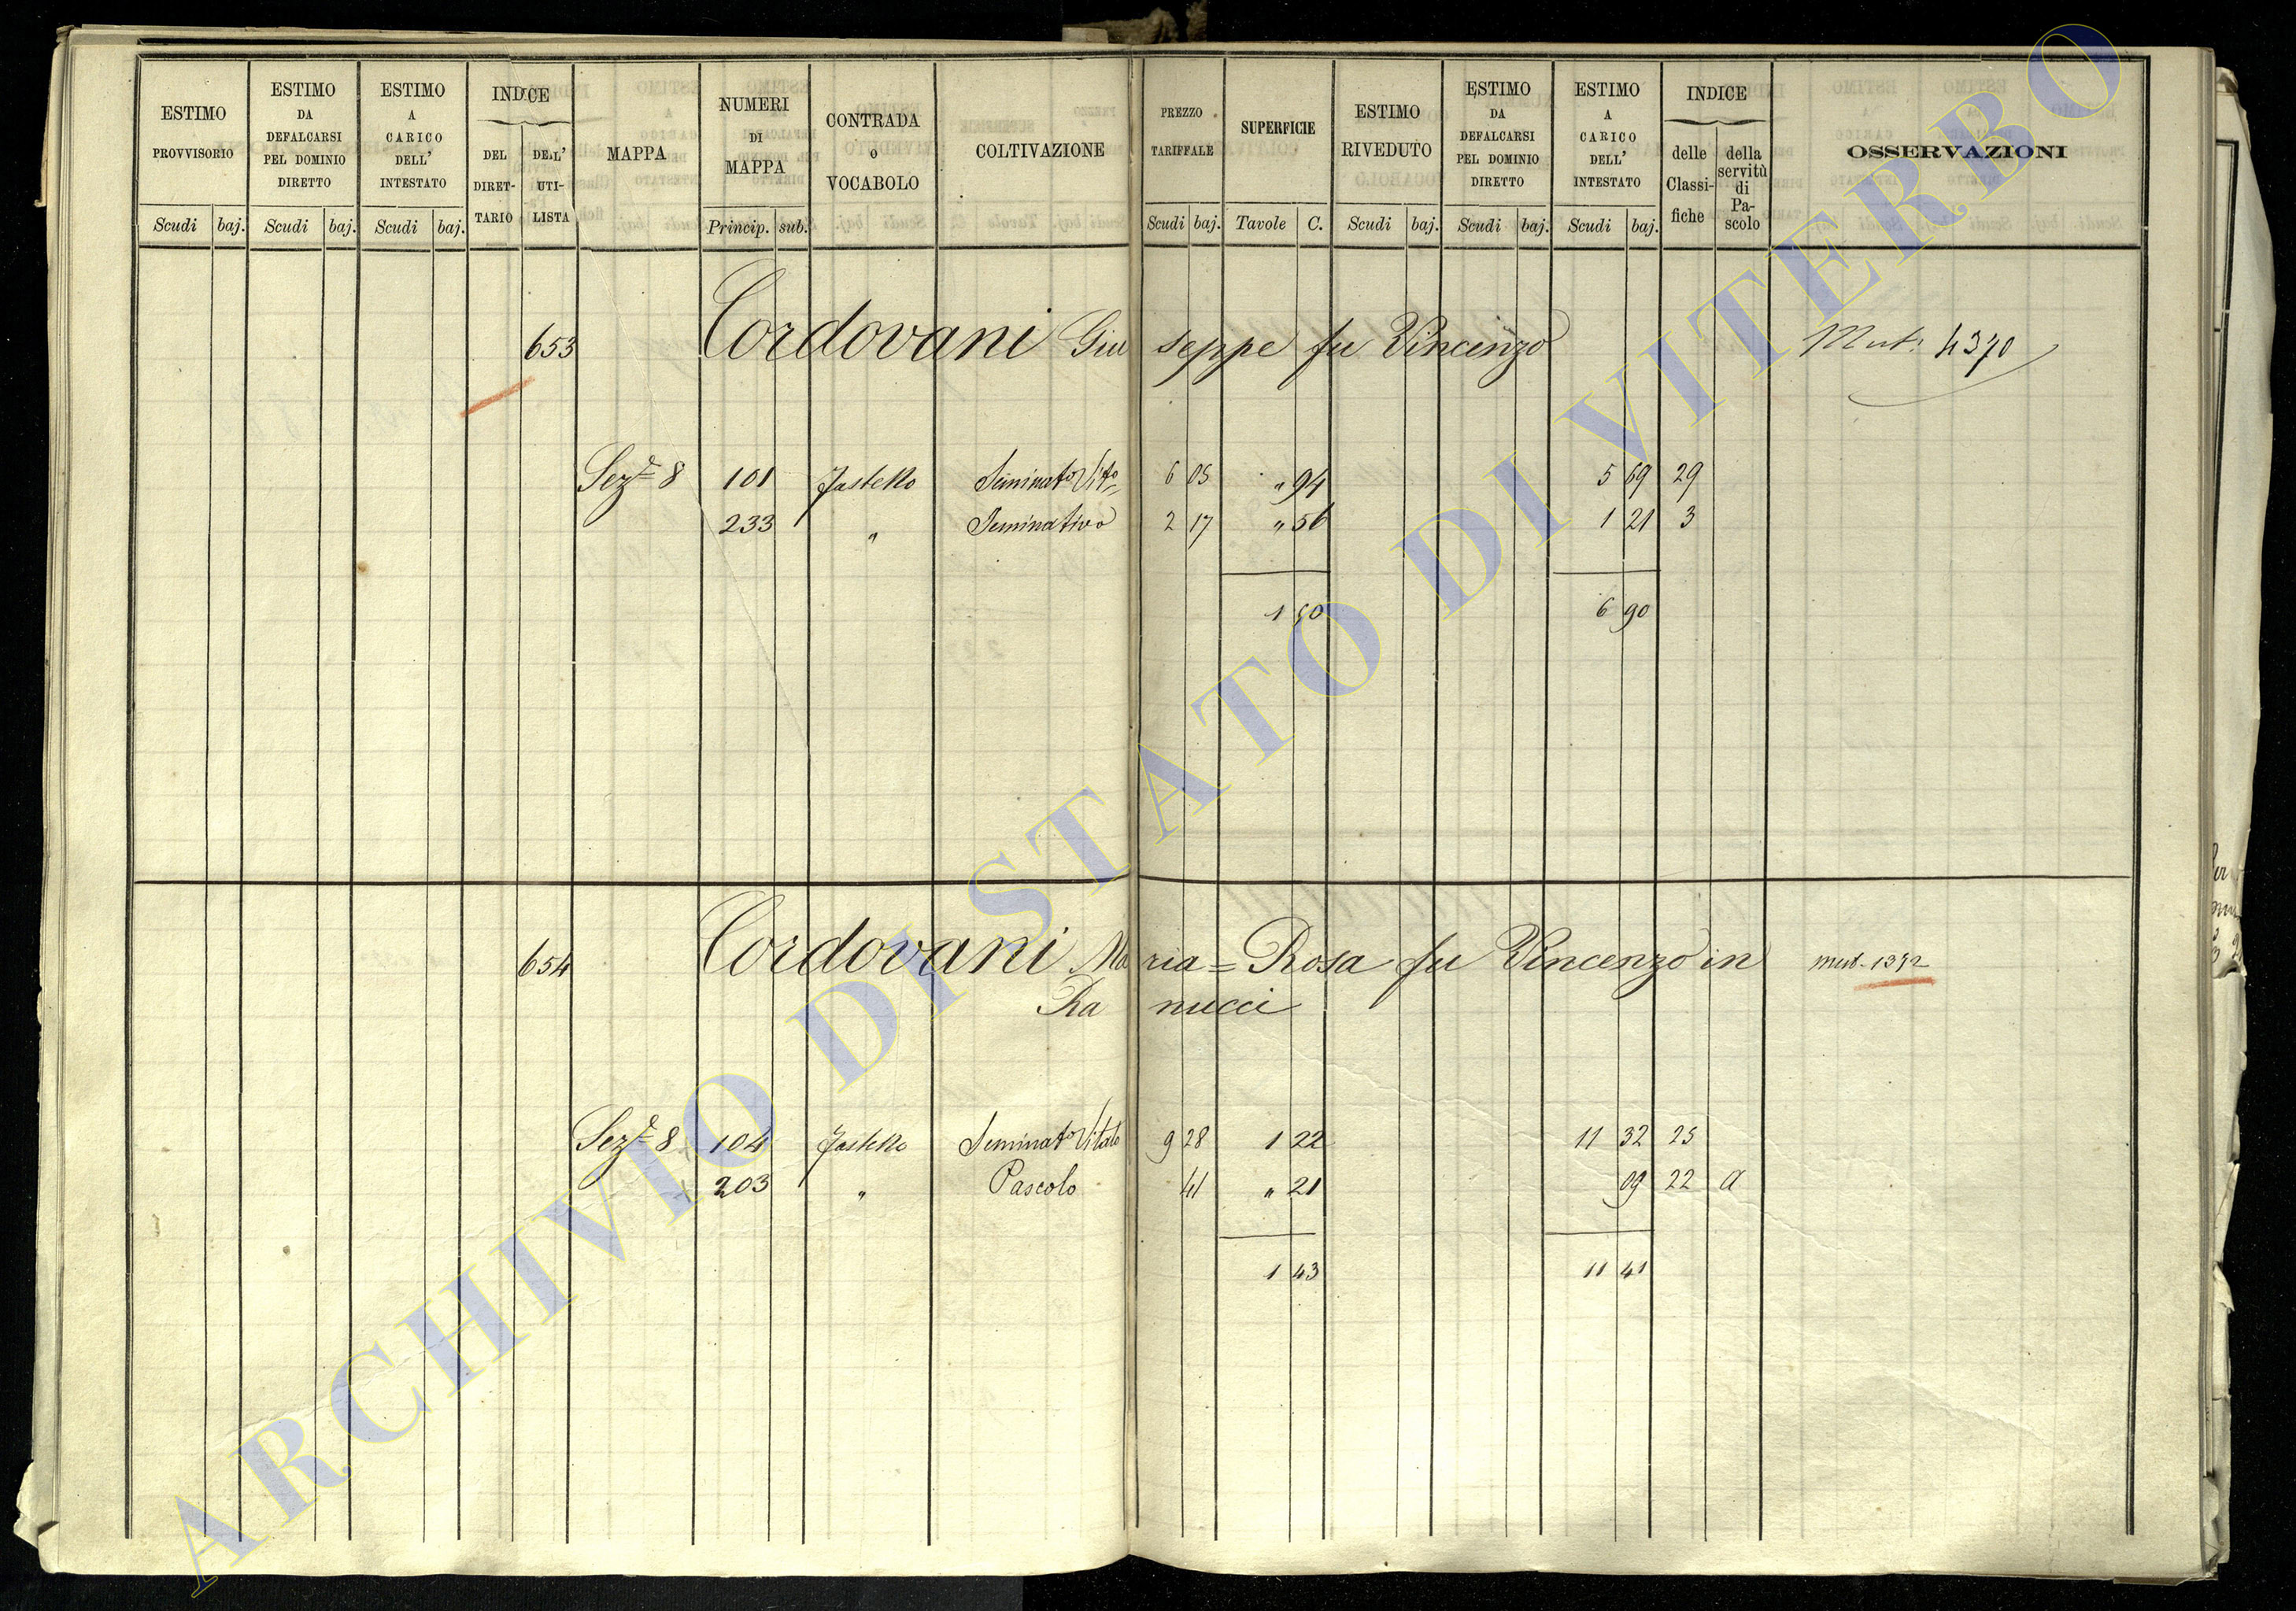 ESTIMO PROVVISORIO
Scudi baj.
ESTIMO DA DEFALCARSI PEL DOMINIO DIRETTO
Scudi baj.
ESTIMO A CARICO DELL' INTESTATO
Scudi baj.
INDICE
DEL DIRET- TARIO
DELL' UTI- LISTA
MAPPA
NUMERI DI MAPPA
Princip. sub.
CONTRADA O VOCABOLO
COLTIVAZIONE
PREZZO TARIFFALE
Scudi baj.
SUPERFICIE
Tavole C.
ESTIMO RIVEDUTO
Scudi baj.
ESTIMO DA DEFALCARSI PEL DOMINIO DIRETTO
Scudi baj.
ESTIMO A CARICO DELL' INTESTATO
Scudi baj.
INDICE
delle Classi- fiche
della servitù di Pa- scolo
OSSERVAZIONI
653 Cordovani Giu seppe fu Vincenzo Mut: 4370
Sez.e 8 101 Seminato Vito 6 05 " 94 5 69 29
233 " Seminativo 2 17 " 56 1 21 3
1 50 6 90
654 Cordovani Ma ria = Rosa fu Vincenzo in mut-
Ra nucci
Sez.e 8 104 Seminato Vitato 9 28 1 22 11 32 25
203 " Pascolo 41 " 21 09 22 a
1 43 11 41
ARCHIVIO DI STATO DI VITERBO